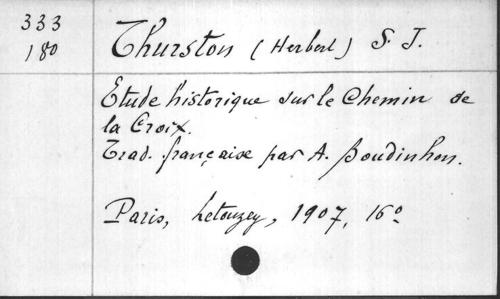 333
180
Thurston (Herbert) S. J.
Etude historique sur le Chemin de
la Croix.
Trad. française par A. Boudinhon.
Paris, Letouzey, 1907, 16º